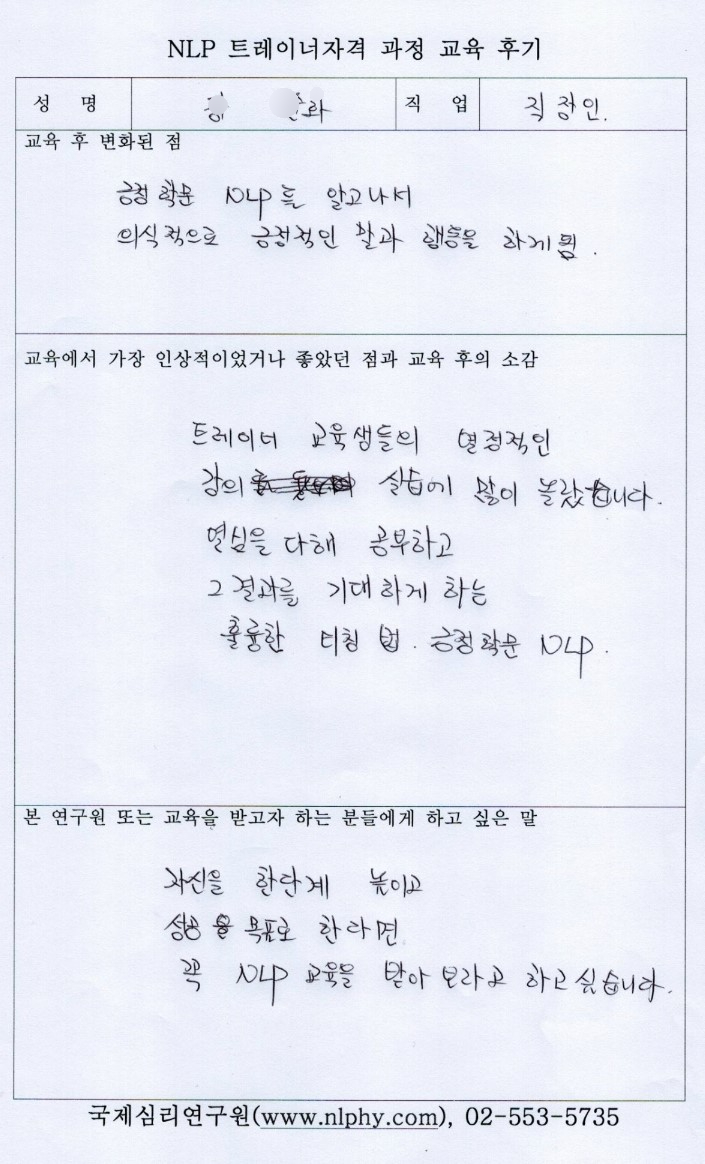 NLP 트레이너자격 과정 교육 후기
성 명 직 업 직장인.
교육 후 변화된 점
긍정학문 NLP를 알고나서
의식적으로 긍정적인 말과 행동을 하게됨.
교육에서 가장 인상적이었거나 좋았던 점과 교육 후의 소감
트레이너 교육생들의 열정적인
강의 실습에 많이 놀랐습니다.
열심을 다해 공부하고
그 결과를 기대하게 하는
훌륭한 티칭 법. 긍정학문 NLP.
본 연구원 또는 교육을 받고자 하는 분들에게 하고 싶은 말
자신을 한단계 높이고
성공을 목표로 한다면
꼭 NLP 교육을 받아 보라고 하고싶습니다.
국제심리연구원(www.nlphy.com), 02-553-5735